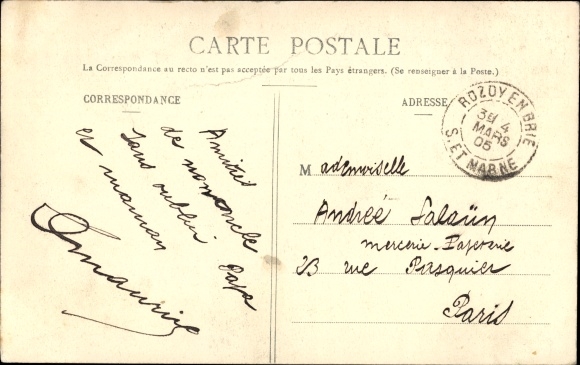 CARTE POSTALE
La Correspondance au recto n'est pas acceptée par tous les Pays étrangers. (Se renseigner à la Poste.)
CORRESPONDANCE
Amitiés
de
papa
sans oublier
et maman
ADRESSE
ROZOY EN BRIE
4
MARS
05
S. ET MARNE
Mademoiselle
Andrée Salaün
mercerie - Papeterie
23 rue Pasquier
Paris